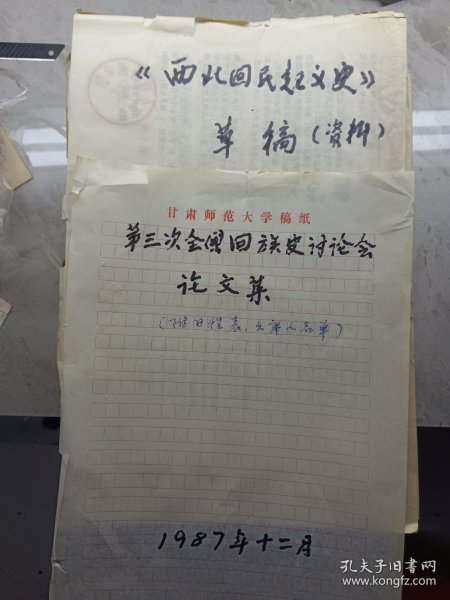 《西北回民起义史》
草稿（资料）
甘肃师范大学稿纸
第三次全国回族史讨论会
论文集
（附日程表、出席人名单）
1987年十二月
孔夫子旧书网
www.kongfz.com